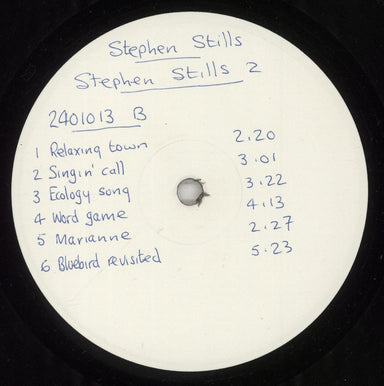 Stephen Stills
Stephen Stills 2
2401013 B
1 Relaxing town 2.20
2 Singin' call 3.01
3 Ecology song 3.22
4 Word game 4.13
5 Marianne 2.27
6 Bluebird revisited 5.23